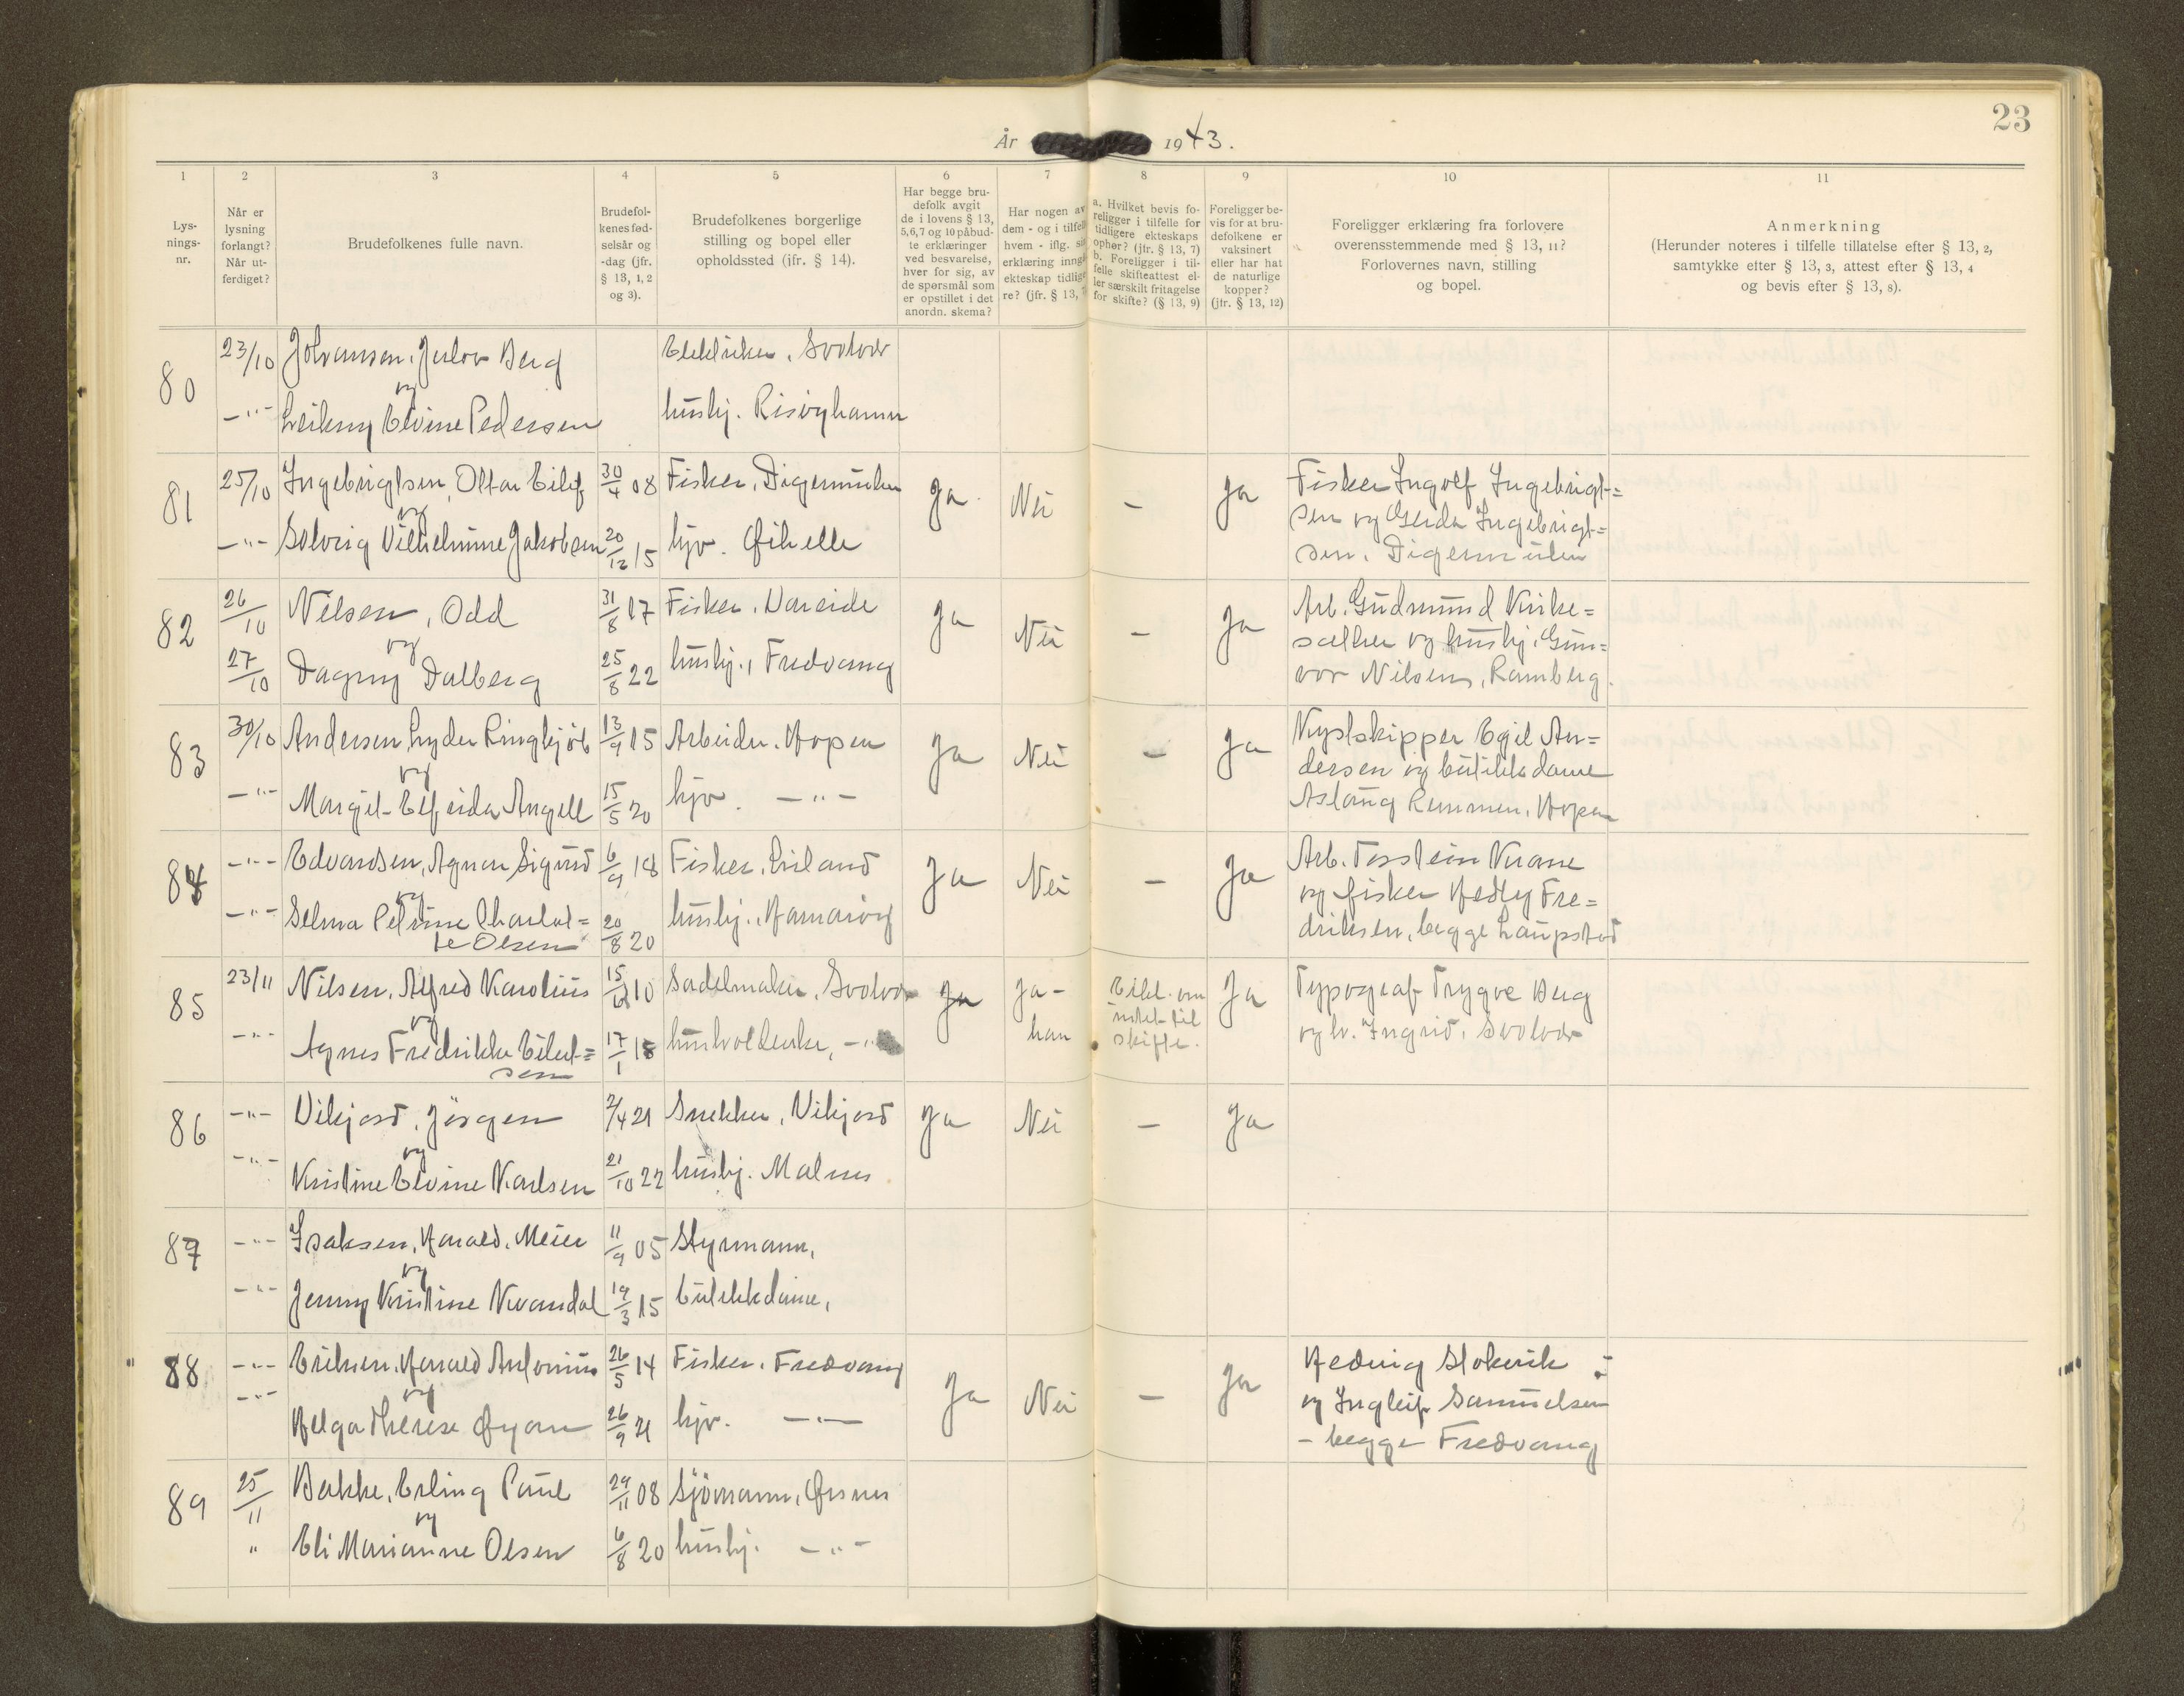 23
År 1943.
1 2 3 4 5 6 7 8 9 10 11
Lys-
nings-
nr.
Når er
lysning
forlangt?
Når ut-
ferdiget?
Brudefolkenes fulle navn.
Brudefol-
kenes fød-
selsår og
-dag (jfr.
§ 13, 1, 2
og 3).
Brudefolkenes borgerlige
stilling og bopel eller
opholdssted (jfr. § 14).
Har begge bru-
defolk avgit
de i lovens § 13,
5, 6, 7 og 10 påbud-
te erklæringer
ved besvarelse,
hver for sig, av
de spørsmål som
er opstillet i det
anordn. skema?
Har nogen av
dem - og i tilfelle
hvem - iflg. sin
erklæring inngå
ekteskap tidlige
re? (jfr. § 13, 7
a. Hvilket bevis fo-
religger i tilfelle for
tidligere ekteskaps
ophør? (jfr. § 13, 7)
b. Foreligger i til-
felle skifteattest el-
ler særskilt fritagelse
for skifte? (§ 13, 9)
Foreligger be-
vis for at bru-
defolkene er
vaksinert
eller har hat
de naturlige
kopper?
(jfr. § 13, 12)
Foreligger erklæring fra forlovere
overensstemmende med § 13, 11?
Forlovernes navn, stilling
og bopel.
Anmerkning
(Herunder noteres i tilfelle tillatelse efter § 13, 2,
samtykke efter § 13, 3, attest efter § 13, 4
og bevis efter § 13, 8).
80 23/10 Johansen, Berg Elektriker, Svolvær
og
-"- Leikny Elvine Pedersen hushj. Risøyhamn
81 25/10 Ingebrigtsen, Ottar Eilif 30/4 08 Fisker, Digermulen Ja Nei - Ja Fisker Ingolf Ingebrigt=
og sen og Gerda Ingebrigt=
-"- Solveig Vilhelmine Jakobsen 20/12 15 hjv. Øihelle sen, Digermulen
82 26/10 Nilsen, Odd 31/8 17 Fisker, Nareide Ja Nei - Ja Arb. Gudmund Kirke=
og sæther og hushj. Gun=
27/10 Dagny Dalberg 25/8 22 hushj., Fredvang vor Nilsen, Ramberg.
83 30/10 Andersen, Lyder Ringkjøb 13/9 15 Arbeider, Hopen Ja Nei - Ja Kystskipper Egil An=
og dersen og butikkdame
-"- Margit Elfrida Angell 15/5 20 hjv. -"- Aslaug Remmen, Hopen
84 -"- Edvardsen, Agnar Sigurd 6/9 18 Fisker, Ja Nei - Ja Arb. Torstein Krane
og og fisker Hedly Fre=
-"- Selma Petrine Charlot= 20/8 20 hushj., Hamarøy driksen, begge Laupstad
te Olsen
85 23/11 Nilsen, Alfred Karolius 15/ 10 Sadelmaker, Svolvær Ja Ja - Erkl. om Ja Typograf Trygve Berg
og han intet til og fr. Ingrid, Svolvær
-"- Agnes Fredrikke Eilert= 17/1 18 husholderske, -"- skifte.
sen
86 -"- Vikjord, Jørgen 2/4 21 Snekker, Vikjord Ja Nei - Ja
og
-"- Kristine Elvine Karlsen 21/10 22 hushj. Malnes
87 -"- Isaksen, Harald, Meier 11/9 05 Styrmann,
og
-"- Jenny Kristine Kvandal 19/3 15 butikkdame,
88 -"- Eriksen, Harald Antonius 26/5 14 Fisker, Fredvang Ja Nei - Ja Hedvig Stokvik
og og Ingleif Samuelsen
-"- Helga Therese Øyan 26/9 21 hjv. -"- - begge Fredvang
89 25/11 Bakke, Erling Paul 29/11 08 Sjömann, Øksnes
og
" Eli Marianne Olsen 6/8 20 hushj. -"-